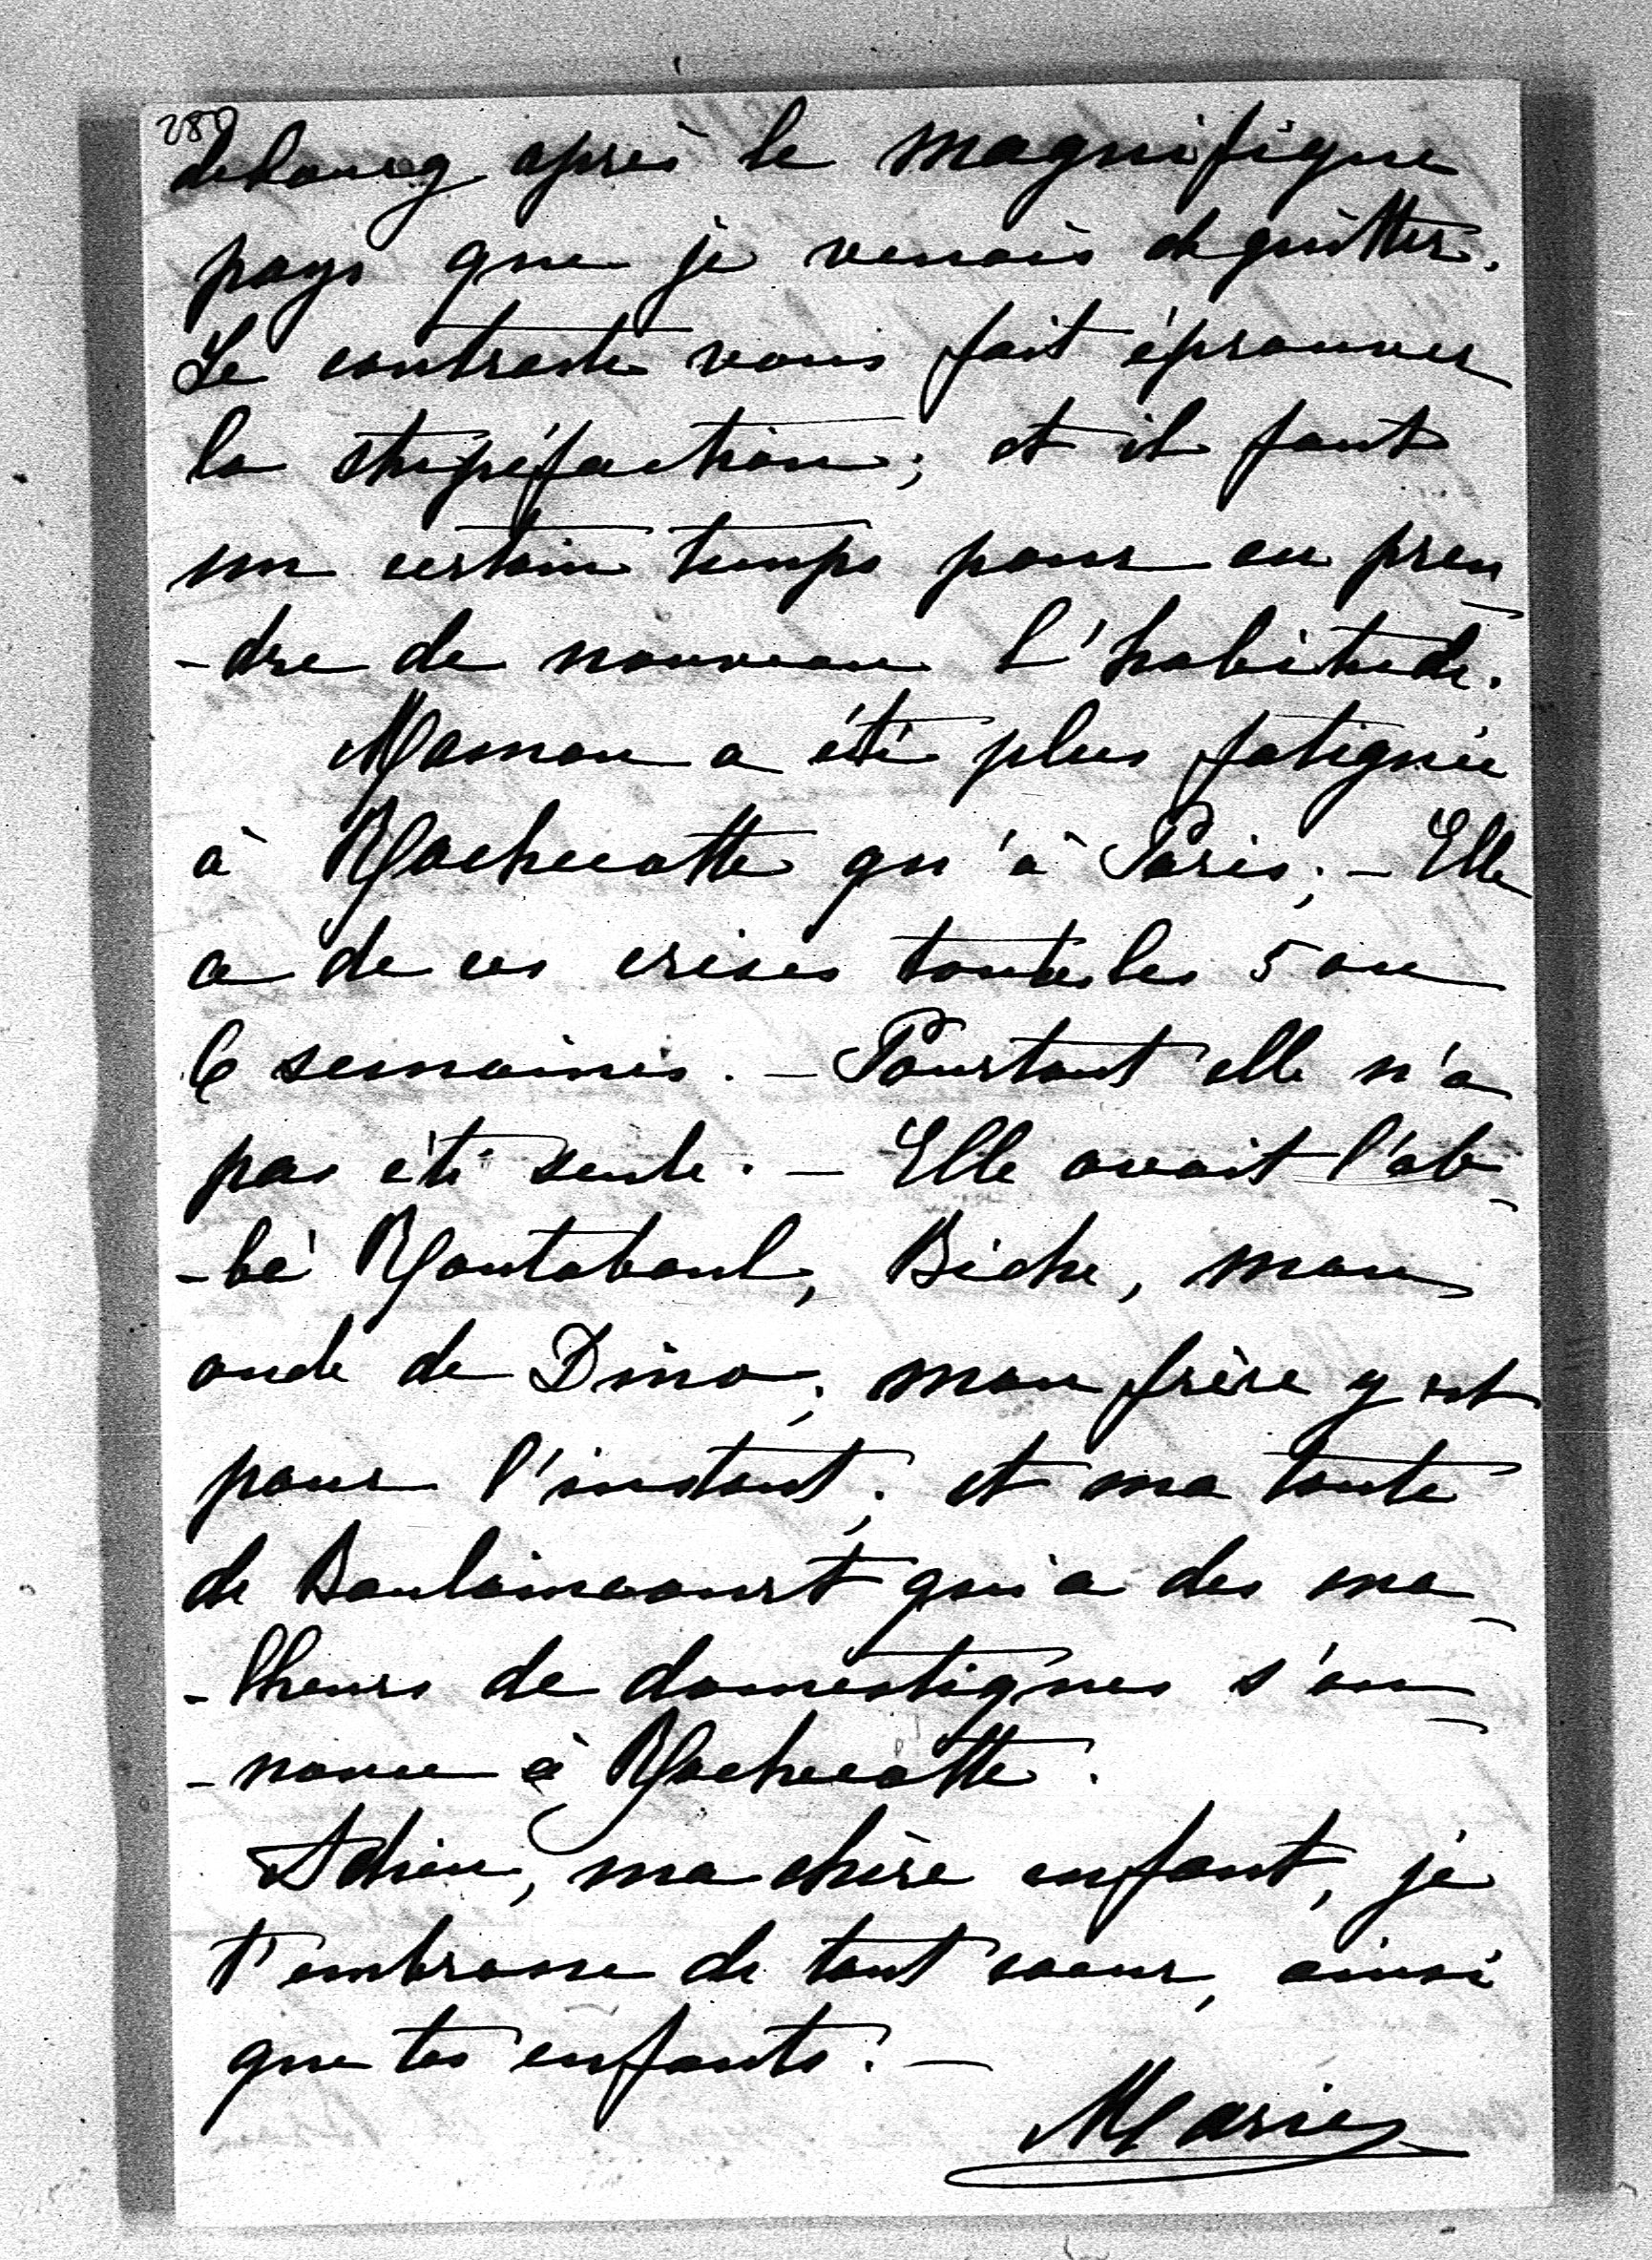 280
debourg après le magnifique
pays que je venais de quitter.
Le contraste vous fait éprouver
la stupéfaction; et il faut
un certain temps pour en pren
-dre de nouveau l'habitude.
Maman a été plus fatiguée
à Rochecotte qu'à Paris; - Elle
a de ces crises toutes les 5 ou
6 semaines. - Pourtant elle n'a
pas été seule. - Elle avait l'ab-
-bé Montaboul, Biche, mon
oncle de Dino; mon frère y est
pour l'instant; et ma tante
de Boulaincourt qui a des ma-
-lheurs de domestiques s'an-
-nonce à Rochecotte.
Adieu, ma chère enfant, je
t'embrasse de tout coeur, ainsi
que tes enfants. -
Marie